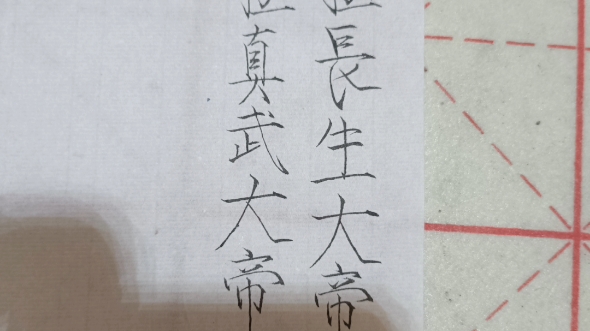 長生大帝
真武大帝